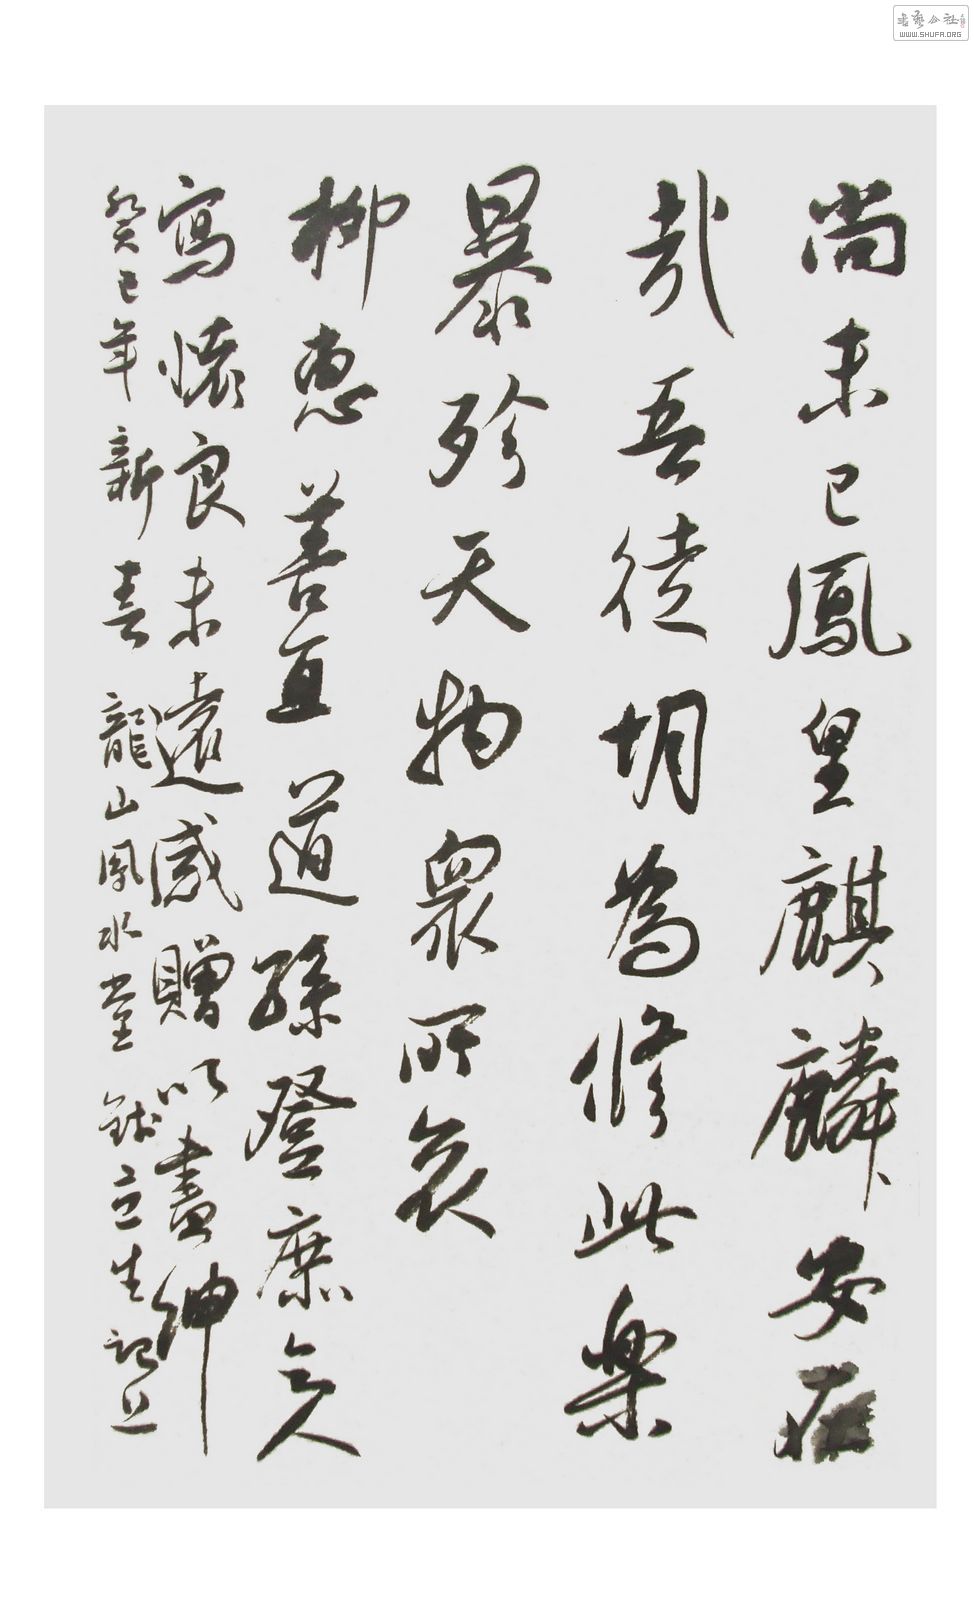 尚未已鳳皇麒麟安在
哉吾徒胡為修此樂
暴殄天物衆所哀
柳惠善直道孫登庶今人
寫懷良未遠感贈以書紳
癸巳年新春龍山鳳水堂 立生記之
書藝公社
WWW.SHUFA.ORG